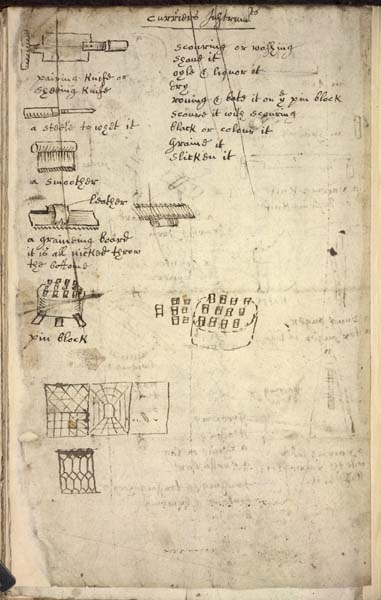 Curriers Instrum^ts
pairing knife or
sheeving knife
a steele to whet it
a smoother
leather
a graineing board
it is all nicked throw
the bottome
pin block
scouring or washing
shave it
oyle & liquor it
dry
& bate it on y^e pin block
scoure it with scouring
black or colour it
Graine it
slicken it